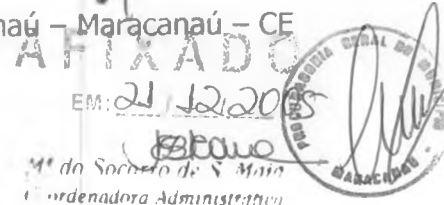 naú – Maracanaú – CE
AFIXADO
EM: 21 12 2005
Mª do Socorro de S. Maia
Coordenadora Administrativa
PROCURADORIA GERAL DO MUNICÍPIO
MARACANAÚ